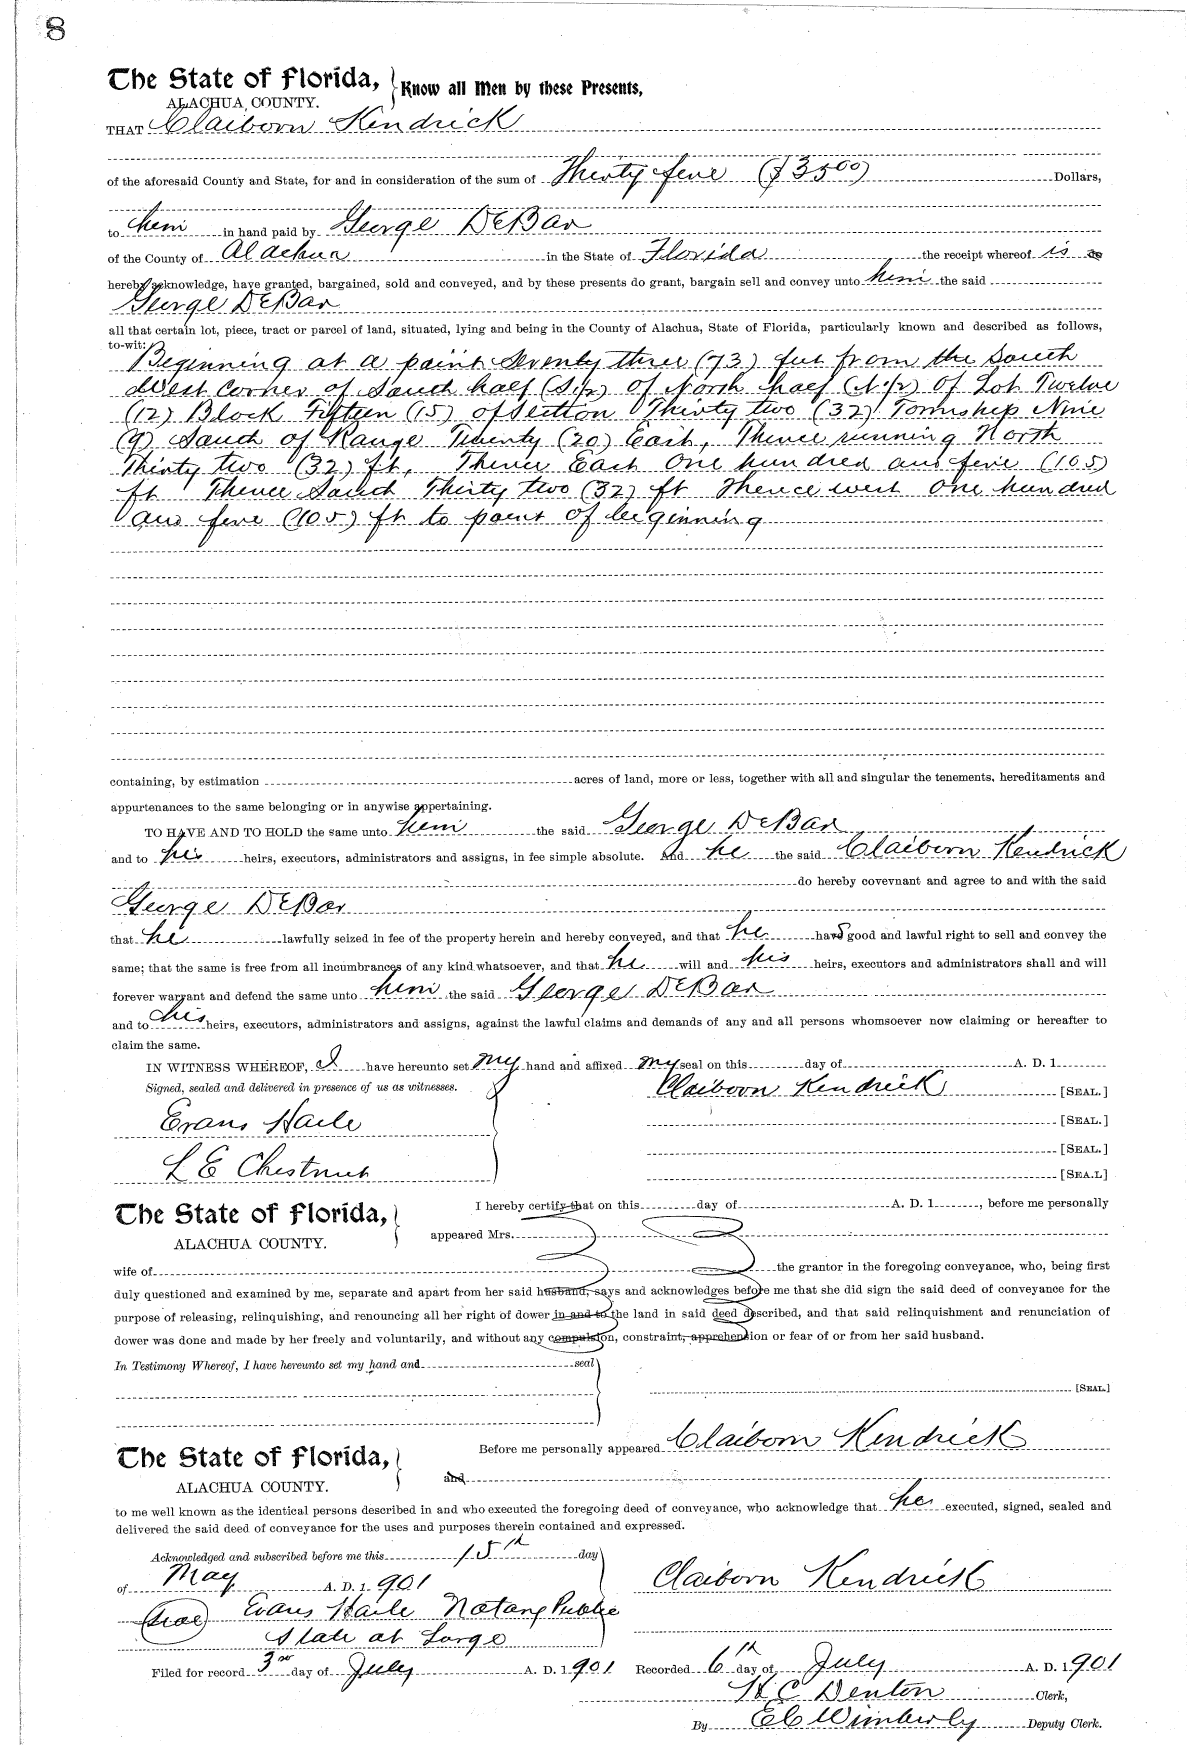 8
The State of Florida, } Know all Men by these Presents,
ALACHUA COUNTY.
THAT Claiborn Kendrick
of the aforesaid County and State, for and in consideration of the sum of Thirty five ($35 00) Dollars,
to him in hand paid by George DeBar
of the County of Alachua in the State of Florida the receipt whereof is do
hereby acknowledge, have granted, bargained, sold and conveyed, and by these presents do grant, bargain sell and convey unto him the said
George DeBar
all that certain lot, piece, tract or parcel of land, situated, lying and being in the County of Alachua, State of Florida, particularly known and described as follows,
to-wit:
Beginning at a point Seventy three (73) feet from the South
West Corner of South half (S.½) of North half (N.½) of Lot Twelve
(12) Block Fifteen (15) of Section Thirty two (32) Township Nine
(9) South of Range Twenty (20) East, Thence running North
Thirty two (32) ft, Thence East One hundred and five (105)
ft Thence South Thirty two (32) ft Thence west one hundred
and five (105) ft to point of beginning
containing, by estimation acres of land, more or less, together with all and singular the tenements, hereditaments and
appurtenances to the same belonging or in anywise appertaining.
TO HAVE AND TO HOLD the same unto him the said George DeBar
and to his heirs, executors, administrators and assigns, in fee simple absolute. And he the said Claiborn Kendrick
do hereby covevnant and agree to and with the said
George DeBar
that he lawfully seized in fee of the property herein and hereby conveyed, and that he has good and lawful right to sell and convey the
same; that the same is free from all incumbrances of any kind whatsoever, and that he will and his heirs, executors and administrators shall and will
forever warrant and defend the same unto him the said George DeBar
and to his heirs, executors, administrators and assigns, against the lawful claims and demands of any and all persons whomsoever now claiming or hereafter to
claim the same.
IN WITNESS WHEREOF, I have hereunto set my hand and affixed my seal on this day of A. D. 1
Signed, sealed and delivered in presence of us as witnesses. Claiborn Kendrick [SEAL.]
Evans Haile [SEAL.]
[SEAL.]
L E Chestnut [SEA.L]
The State of Florida, I hereby certify that on this day of A. D. 1 , before me personally
ALACHUA COUNTY. appeared Mrs.
wife of the grantor in the foregoing conveyance, who, being first
duly questioned and examined by me, separate and apart from her said husband, says and acknowledges before me that she did sign the said deed of conveyance for the
purpose of releasing, relinquishing, and renouncing all her right of dower in and to the land in said deed described, and that said relinquishment and renunciation of
dower was done and made by her freely and voluntarily, and without any compulsion, constraint, apprehension or fear of or from her said husband.
In Testimony Whereof, I have hereunto set my hand and seal
[SEAL.]
The State of Florida, Before me personally appeared Claiborn Kendrick
ALACHUA COUNTY. and
to me well known as the identical persons described in and who executed the foregoing deed of conveyance, who acknowledge that he executed, signed, sealed and
delivered the said deed of conveyance for the uses and purposes therein contained and expressed.
Acknowledged and subscribed before me this 15th day
of May A. D. 1901 Claiborn Kendrick
Seal Evans Haile Notary Public
State at Large
Filed for record 3rd day of July A. D. 1901 Recorded 6th day of July A. D. 1901
H C Denton Clerk,
By E C Wimberly Deputy Clerk.